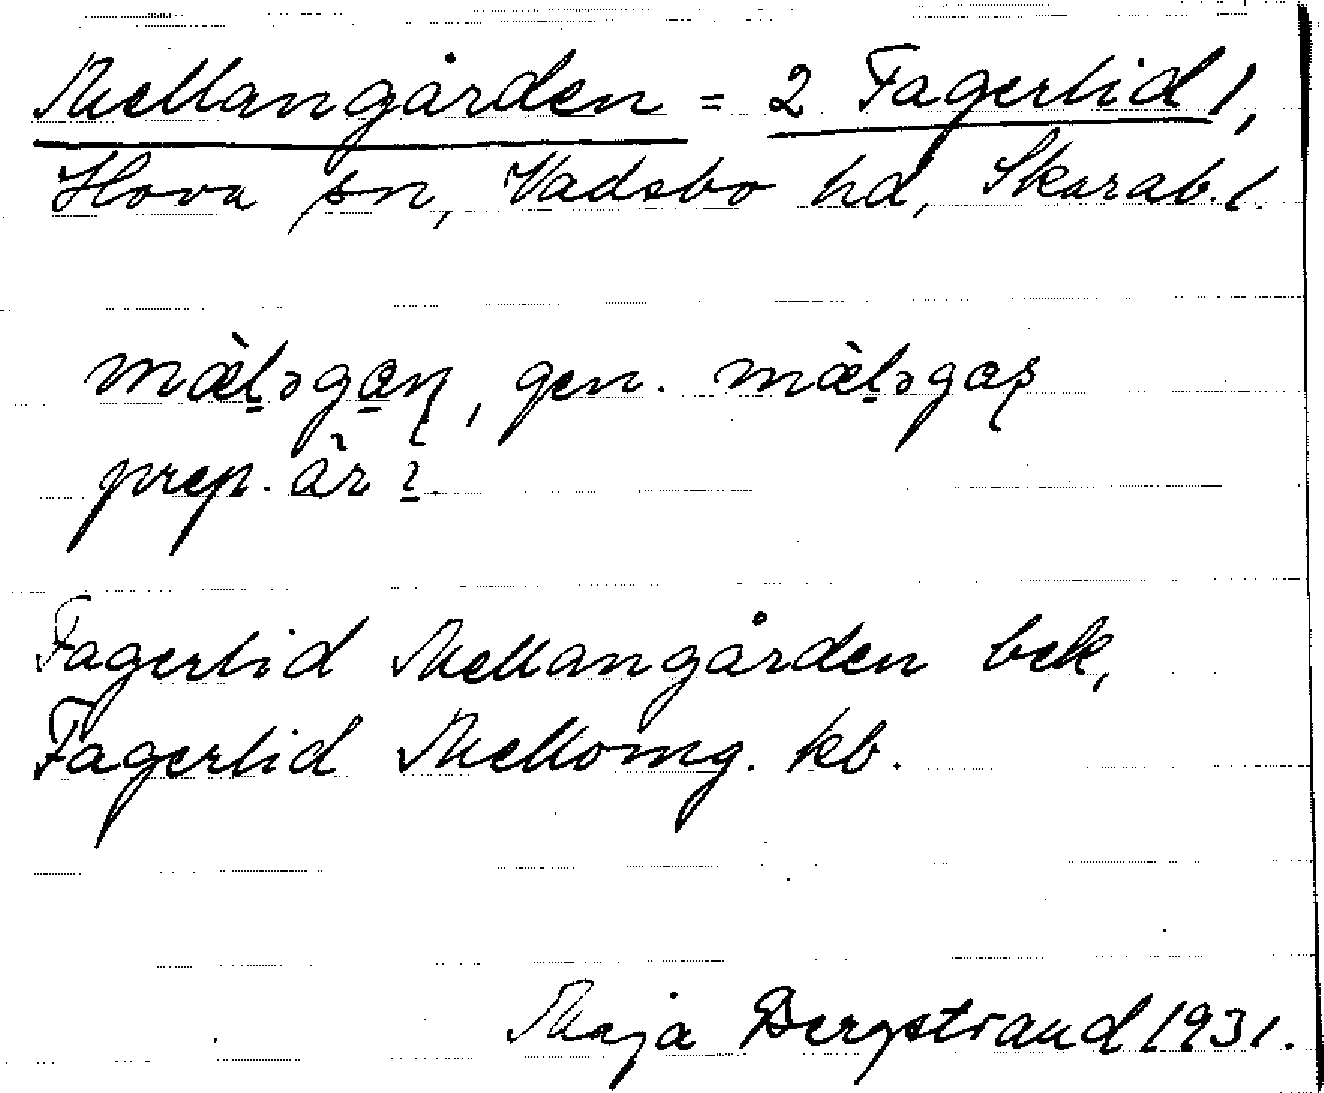 Mellangården = 2 Fagerlid 1,
Hova sn, Vadsbo hd, Skarab. l.
mæ̀l̠əga̠ɳ, gen. mæ̀l̠əgaʂ
prep. àr ı̠.
Fagerlid Mellangården bek,
Fagerlid Mellomg. kb.
Maja Bergstrand 1931.